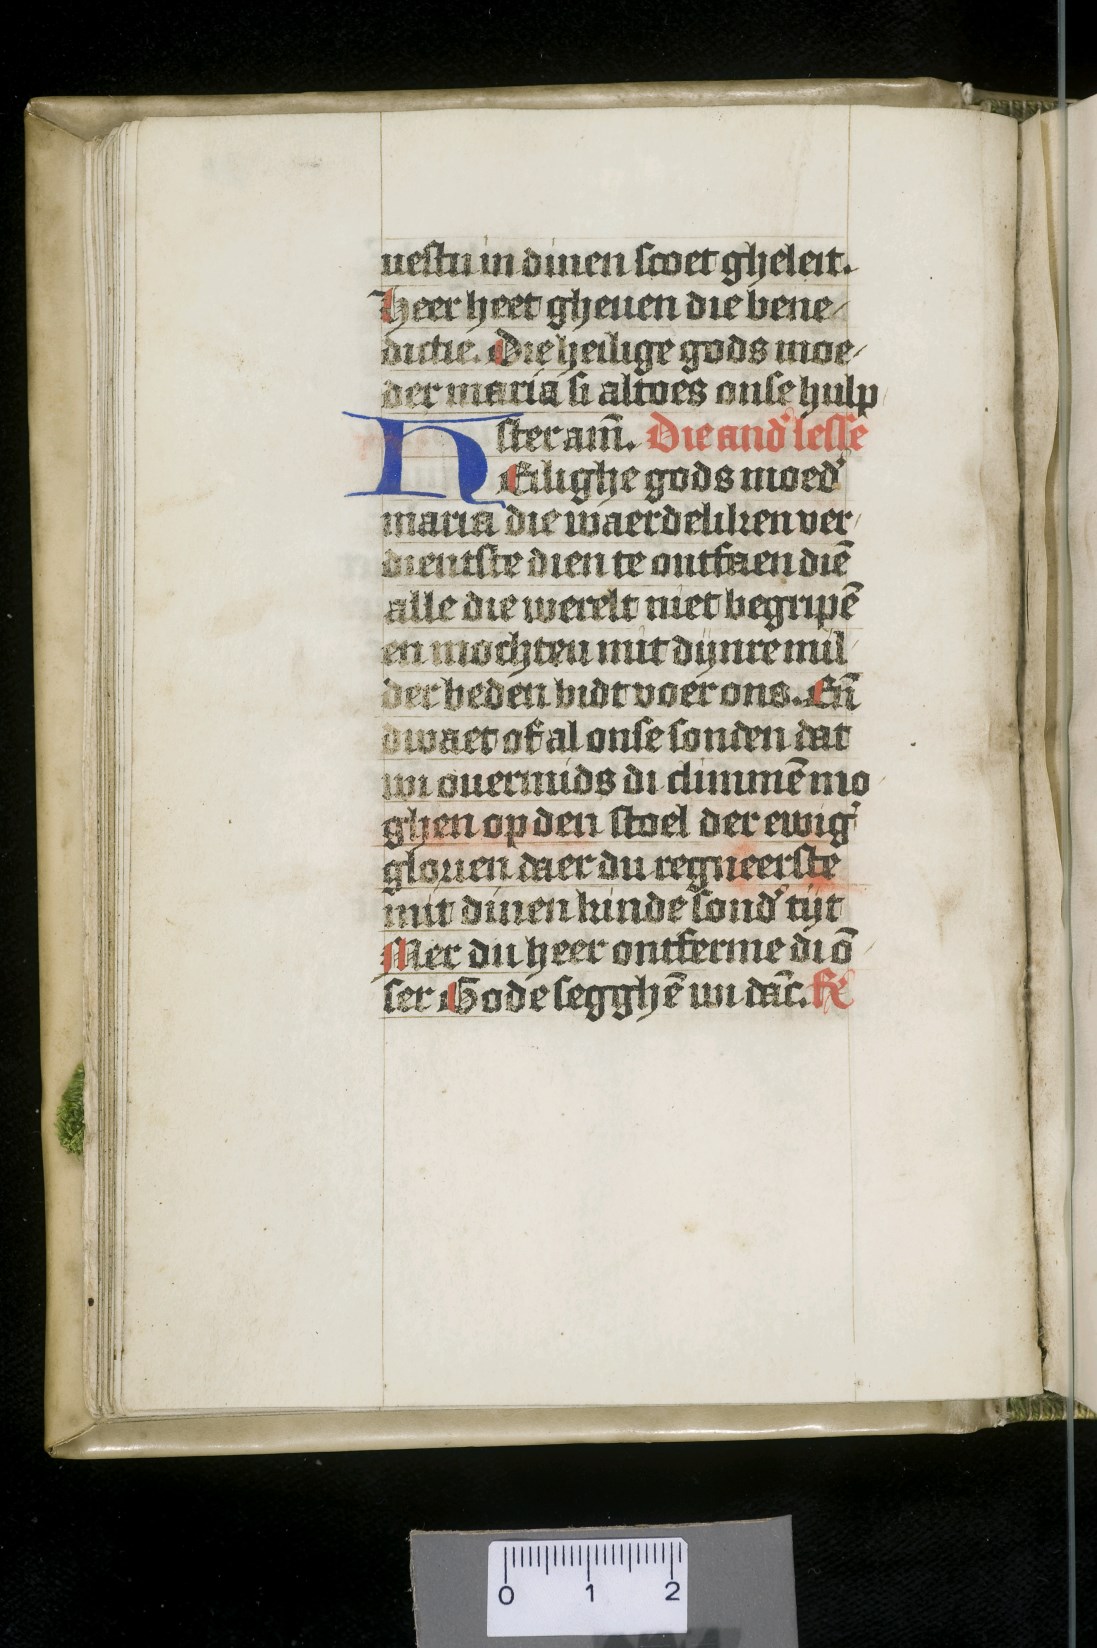 uestu in dinen scoet gheleit.
Heer heet gheuen die bene⸗
dictie. Die heilige gods moe⸗
der maria si altoes onse hulp
ster am̄. Die and' lesse
HEilighe gods moed'
maria die waerdeliken ver⸗
dientste dien te ontfaen diē
alle die werelt niet begripē
en mochten mit dijnre mil⸗
der beden bidt voer ons. Eñ
dwaet of al onse sonden dat
wi ouermids di climmē mo
ghen op den stoel der ewig'
glorien daer du regneerste
mit dinen kinde sond' tijt
Mer du heer ontferme di ō
ser Gode segghē wi dāc. Re
0 1 2